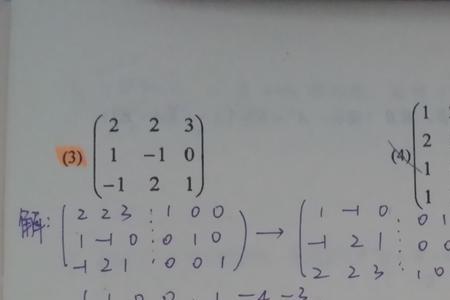 (3) 2 2 3
1 -1 0
-1 2 1
(4) 1
2
1
1
解: 2 2 3 ⋮ 1 0 0 → 1 -1 0 ⋮ 0 1
1 -1 0 ⋮ 0 1 0 -1 2 1 ⋮ 0 0
-1 2 1 ⋮ 0 0 1 2 2 3 ⋮ 1 0
-4 -3